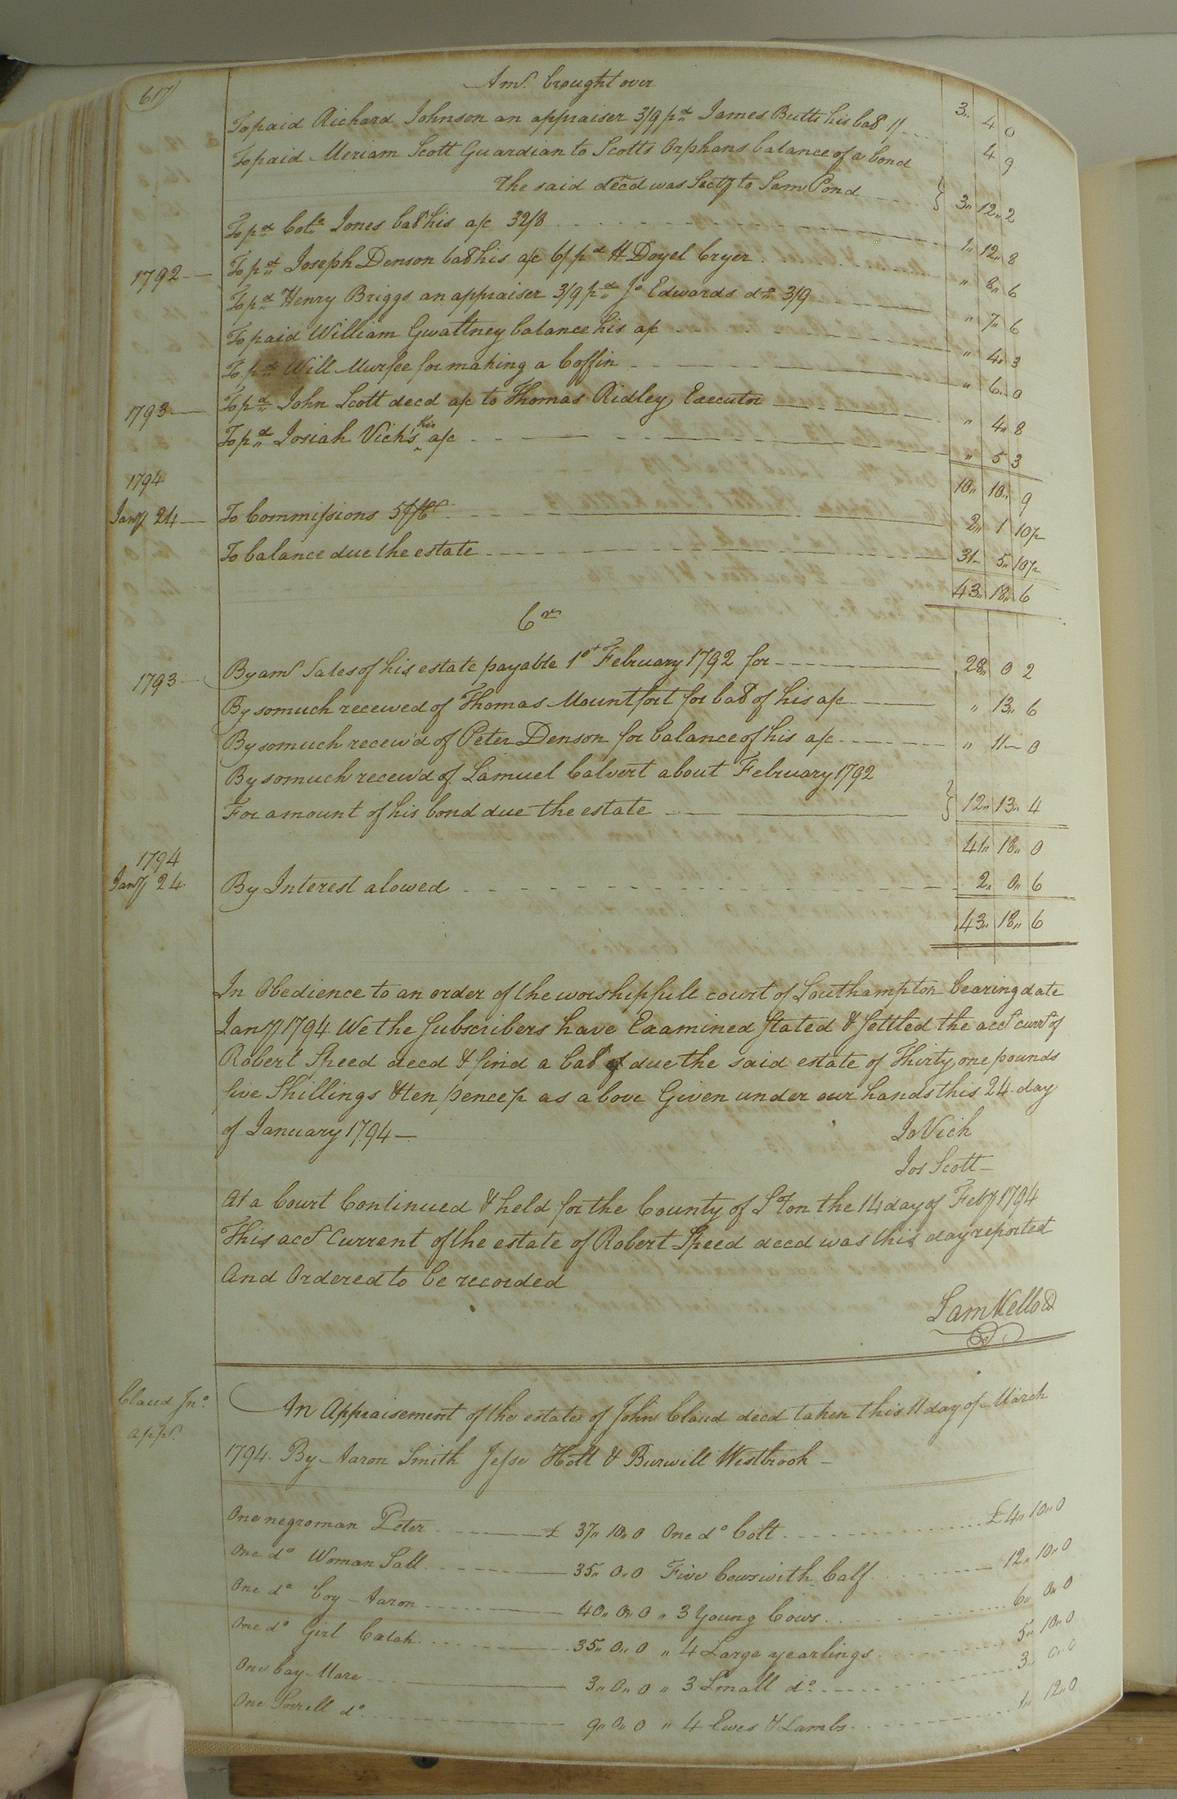 617
Amt. brought over 3 4 0
To paid Richard Johnson an appraiser 3/9 pd. James Butts his bal 1/ 4 9
To paid Meriam Scott Guardian to Scotts Orphans balance of a bond
the said decd was Secty to Sam Pond } 3 12 2
To pd. Jones bal his a/c 32/8 1 12 8
1792 To pd. Joseph Denson bal his a/c 6/ pd H Doyel Cryer " 8 6
To pd Henry Briggs an appraiser 3/9 pd. Jo Edwards do 3/9 " 7 6
To paid William Gwaltney balance his a/c " 4 3
To pd. Will Murfee for making a Coffin " 6 0
1793 To pd. John Scott decd a/c to Thomas Ridley Executor " 4 8
To pd Josiah Vick's his a/c " 5 3
1794 10 10 9
Jany 24 To Commissions 2 1 10½
To balance due the estate 31 5 10½
43 18 6
Cr
1793 By amt Sales of his estate payable 1st February 1792 for 28 0 2
By somuch received of Thomas Mountfort for bal of his a/c " 13 6
By somuch receiv'd of Peter Denson for balance of his a/c " 11 0
By somuch receiv'd of Samuel Calvert about February 1792
For amount of his bond due the estate } 12 13 4
1794 41 18 0
Jany 24 By Interest alowed 2 0 6
43 18 6
In Obedience to an order of the worshipfull court of Southampton bearing date
Jany 1794 We the Subscribers have Examined Stated & Settled the acct currt of
Robert Speed decd & find a bal due the said estate of Thirty one pounds
five Shillings & ten pence ½ as above Given under our hands this 24 day
of January 1794
Jo Vick
Jos Scott
At a Court Continued & held for the County of Ston the 14 day of Feby 1794
This acct Current of the estate of Robert Speed decd was this day reported
And Ordered to be recorded
Sam Kello
Claud Jno. An Appraisement of the estate of John Claud decd taken this 11 day of March
appt. 1794. By Aaron Smith Jesse Holt & Burwell Westbrook
One negroman Peter £ 37 10 0 One do Colt £4 10 0
One do Woman Sall 35 0 0 Five Cows with Calf 12 10 0
One do boy Aaron 40 0 0 " 3 Young Cows 6 0 0
One do Girl 35 0 0 " 4 Large yearlings 5 10 0
One bay Mare 3 0 0 " 3 Small do 3 0 0
One Sorrell do 9 0 0 " 4 Ewes & Lambs 1 12 0